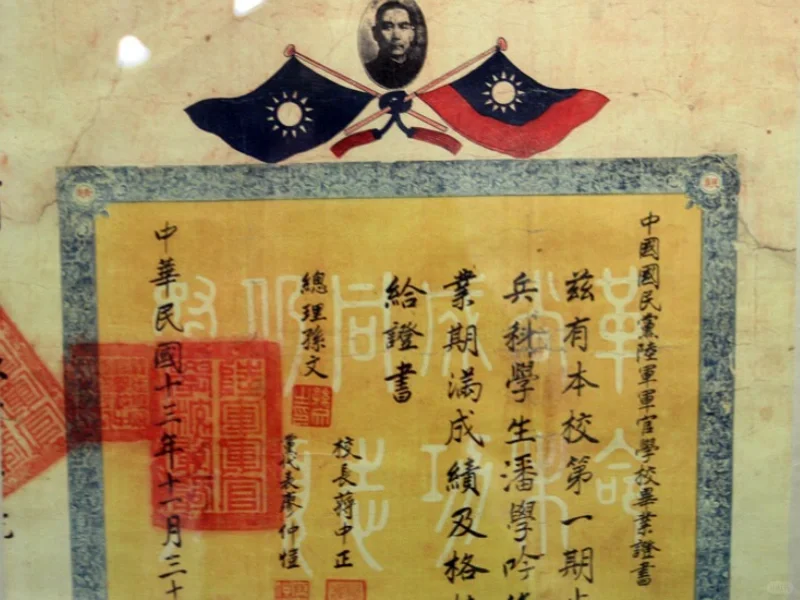 中國國民黨陸軍軍官學校畢業證書
茲有本校第一期步
兵科學生潘學吟修
業期滿成績及格特
給證書
總理孫文
校長蔣中正
黨代表廖仲愷
中華民國十三年十一月三十
革命尚未成功同志仍須努力